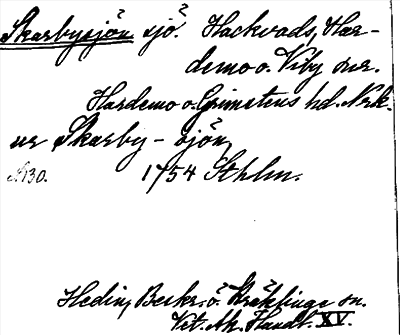 Skarbysjön sjö. Hackvads, Har-
demo o. Viby snr.
Hardemo o. Grimstens hd. Nrk.
ur Skarby-sjön
A130. 1754 Sthlm.
Hedin, Beskr. ö. Kräklinge sn.
Vet. Ak. Handl. XV.